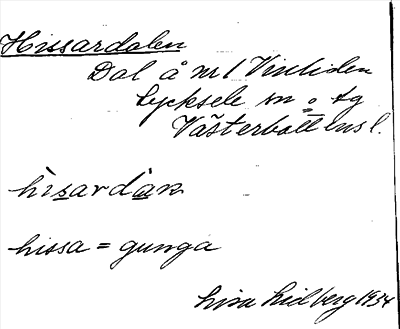 Hissardalen
Dal å nr 1 Vinliden
Lycksele sn o tg
Västerbottens l.
hìsardàn
hissa = gunga
Lisa Lidberg 1934